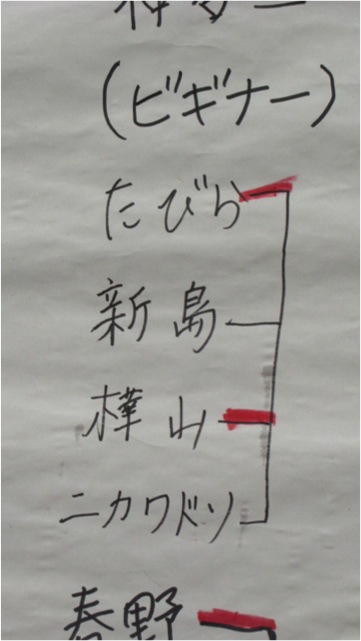 (ビギナー)
たびら
新島
樺山
ニカワドソ
秦野